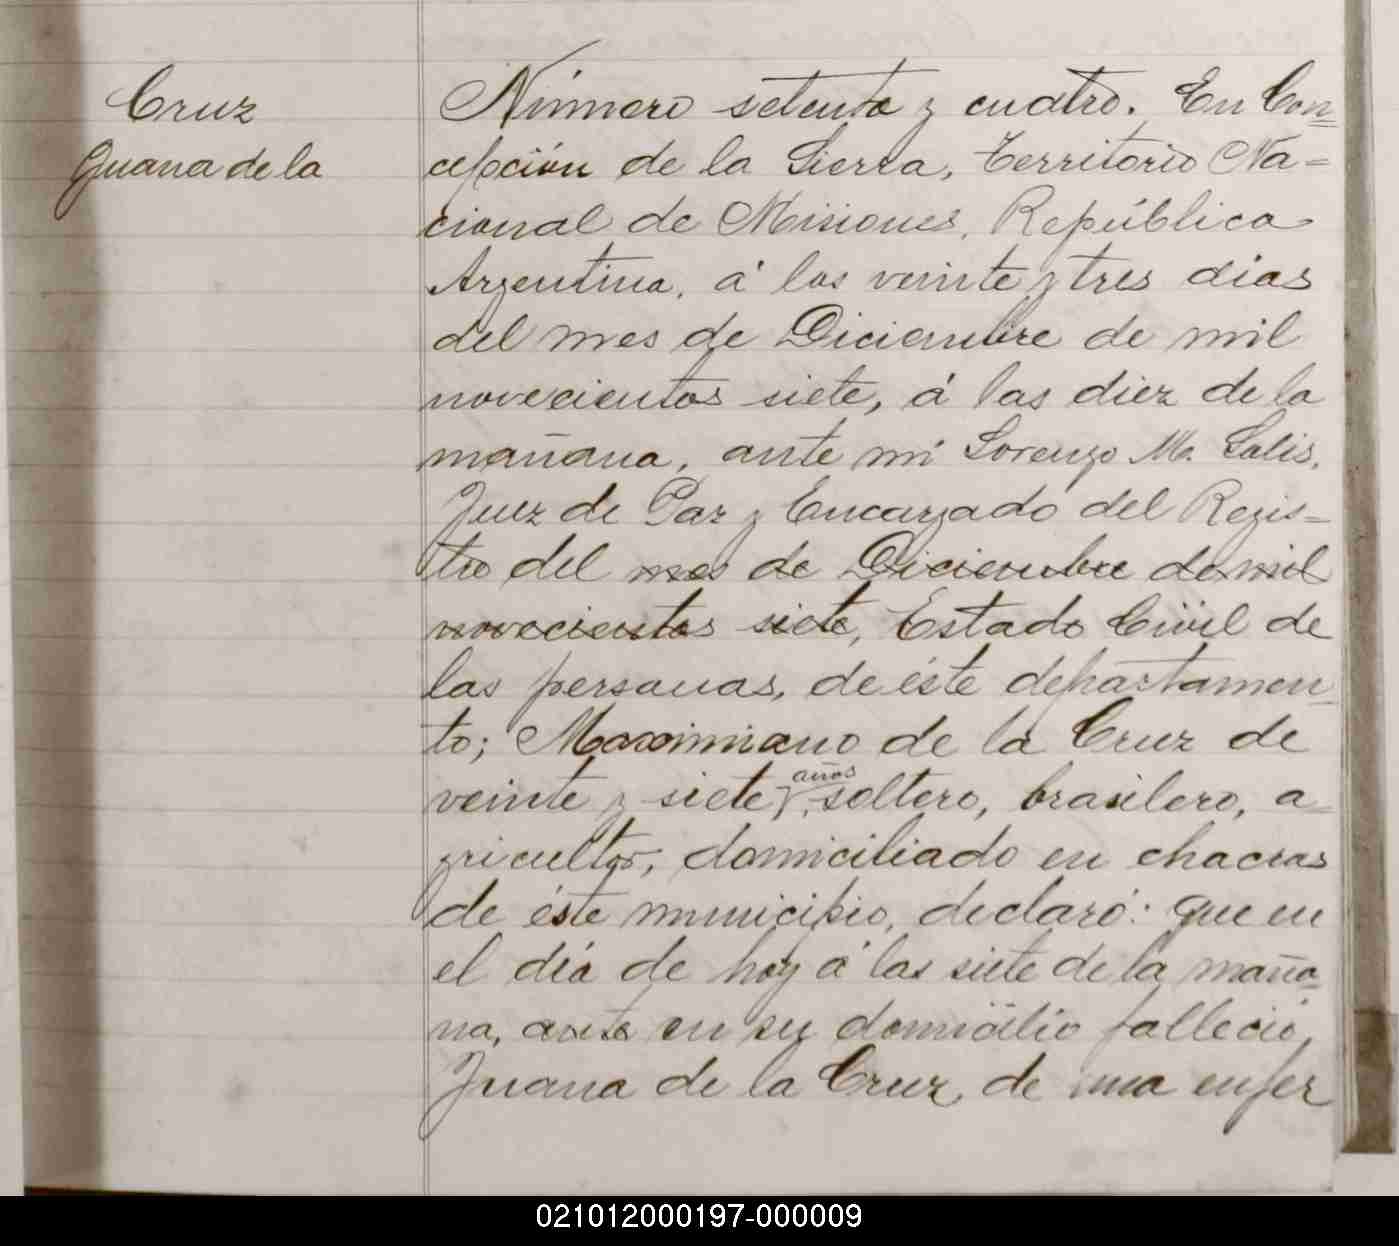 Cruz
Juana de la
Número setenta y cuatro. En Con=
cepción de la Sierra, Territorio Na=
cional de Misiones, República
Argentina, á los veinte y tres dias
del mes de Diciembre de mil
novecientos siete, á las diez de la
mañana, ante mi Lorenzo M. Solis,
Juez de Paz y Encargado del Regis=
tro del mes de Diciembre de mil
novecientos siete, Estado Civil de
las personas, de éste departamen=
to; Maximiano de la Cruz de
veinte y siete años, soltero, brasilero, a
gricultor, domiciliado en chacras
de éste municipio, declaró: que en
el día de hoy á las siete de la maña=
na, ante en su domicilio falleció
Juana de la Cruz, de una enfer
021012000197-000009